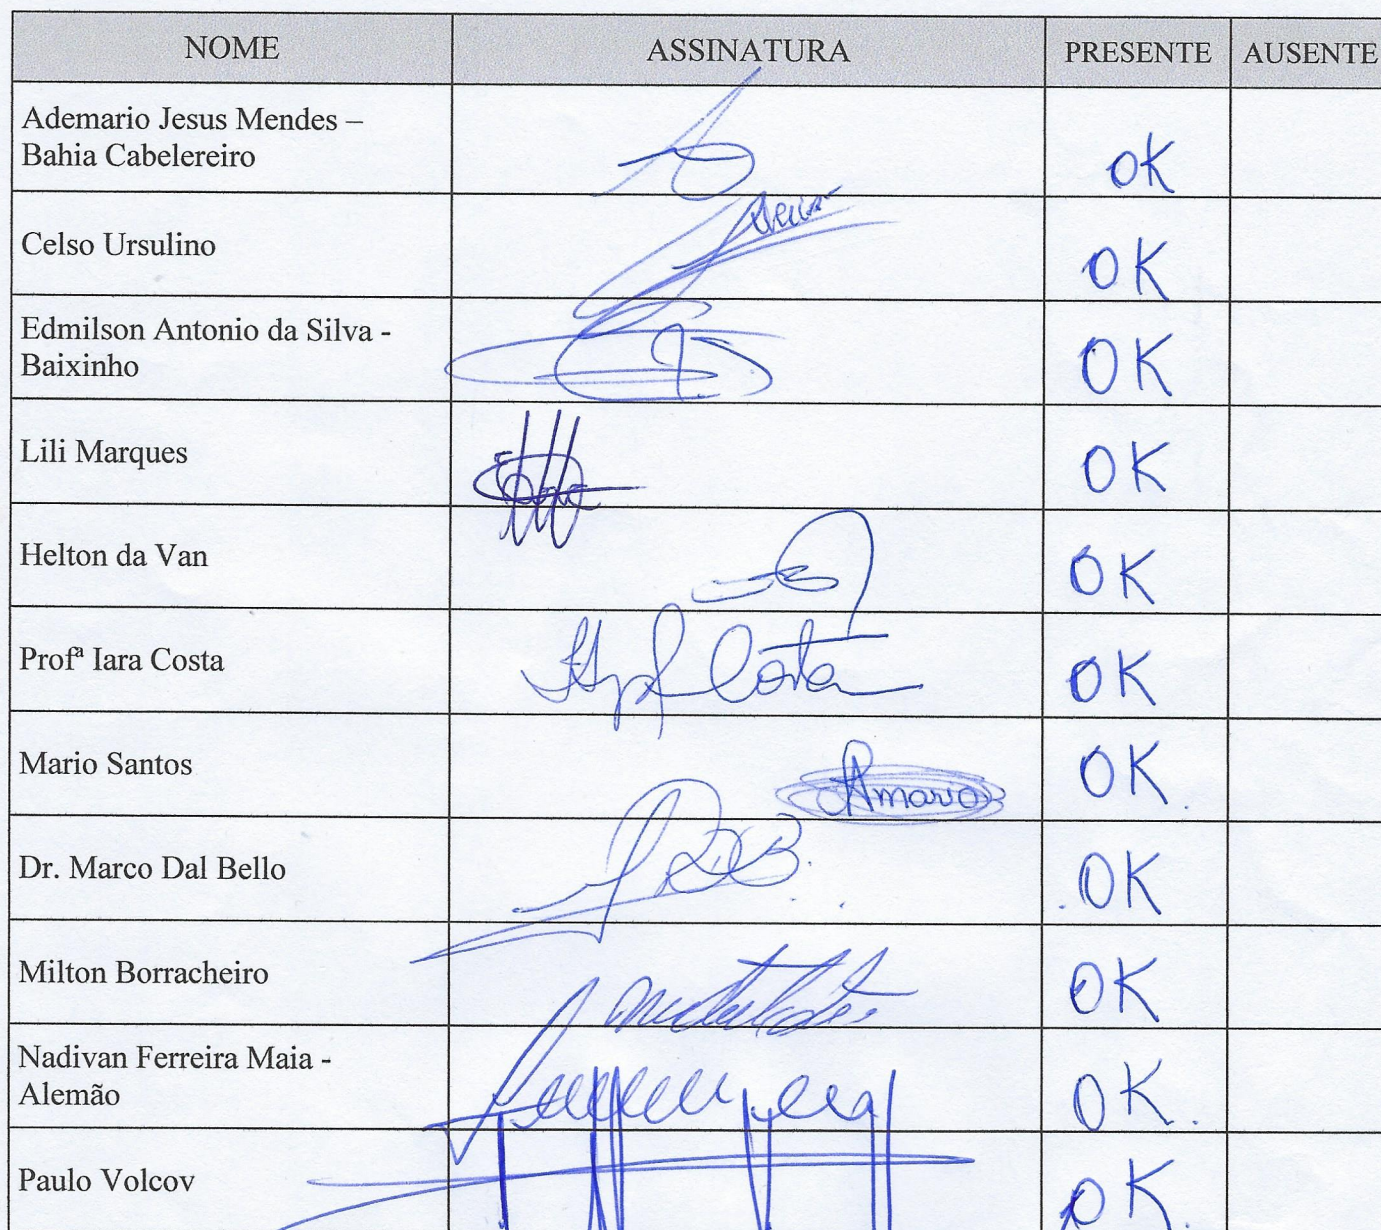 NOME ASSINATURA PRESENTE AUSENTE
Ademario Jesus Mendes –
Bahia Cabelereiro
OK
Celso Ursulino
OK
Edmilson Antonio da Silva -
Baixinho
OK
Lili Marques
OK
Helton da Van
OK
Profª Iara Costa Costa
OK
Mario Santos Amario
OK.
Dr. Marco Dal Bello
OK
Milton Borracheiro
OK
Nadivan Ferreira Maia -
Alemão
OK.
Paulo Volcov
OK.